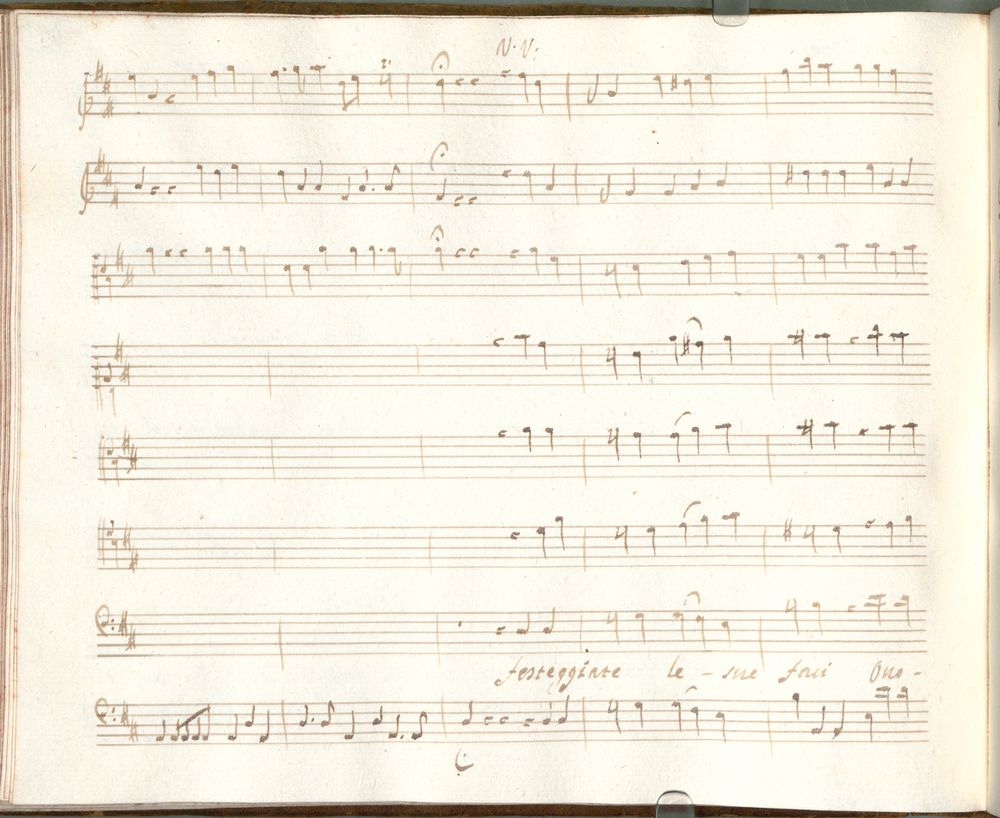 V. V.
festeggiate le - sue foui Ono-